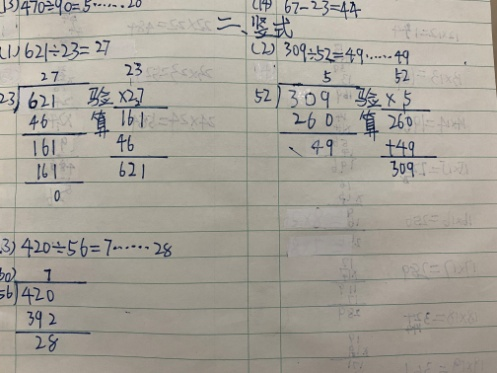 (3) 470÷90=5……20
(14) 67-23=44
二、竖式
(1) 621÷23=27
27
23)621
46
161
161
0
验算
23
×27
161
46
621
(2) 309÷52=49……49
5
52)309
260
49
验算
52
×5
260
+49
309
(3) 420÷56=7……28
7
56)420
392
28